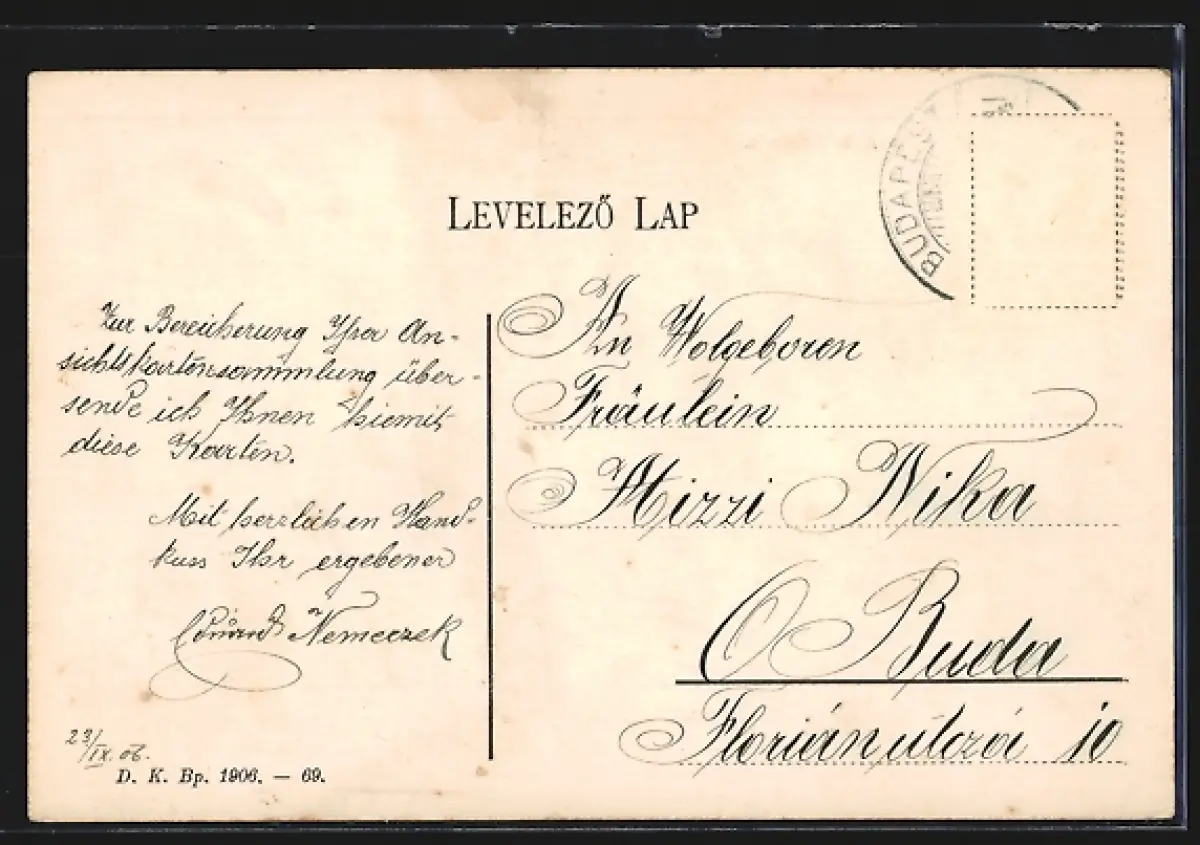 LEVELEZŐ LAP
BUDAPEST
Zur Bereicherung Ihrer An-
sichtskartensammlung über-
sende ich Ihnen hiemit
diese Karten.
Mit herzlichen Hand-
kuss Ihr ergebener
Eduard Nemeczek
23/IX. 06.
D. K. Bp. 1906. — 69.
An Wolgeboren
Fräulein
Mizzi Nika
O Buda
Flórián útcza 10